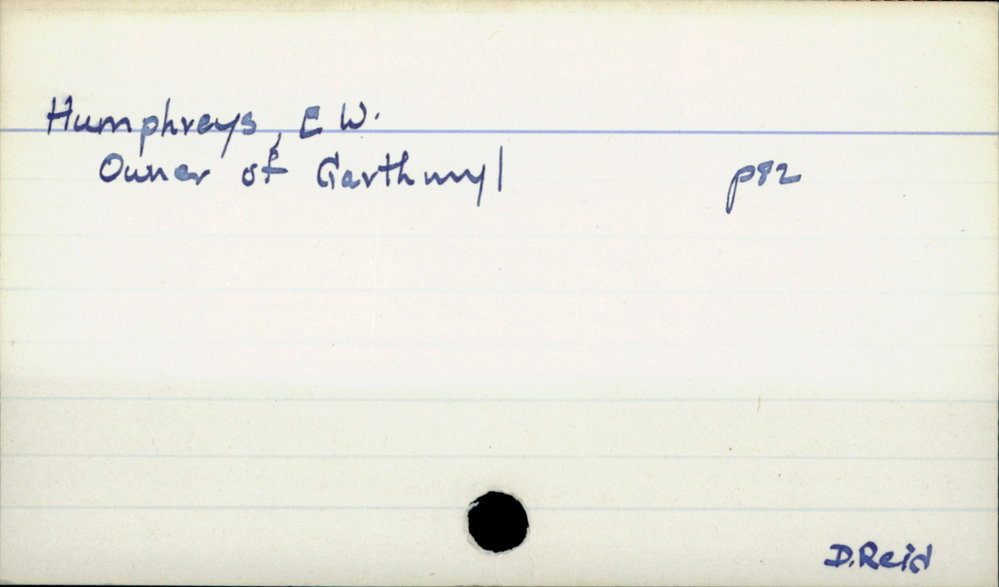 Humphreys, E W.
Owner of Garthmyl p82
D.Reid